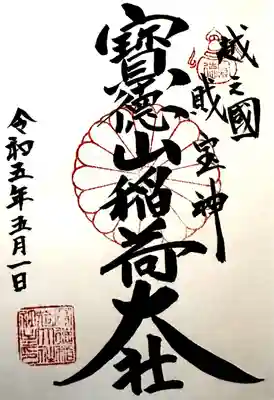 越之國
財宝神
寳徳山稲荷大社
令和五年五月一日